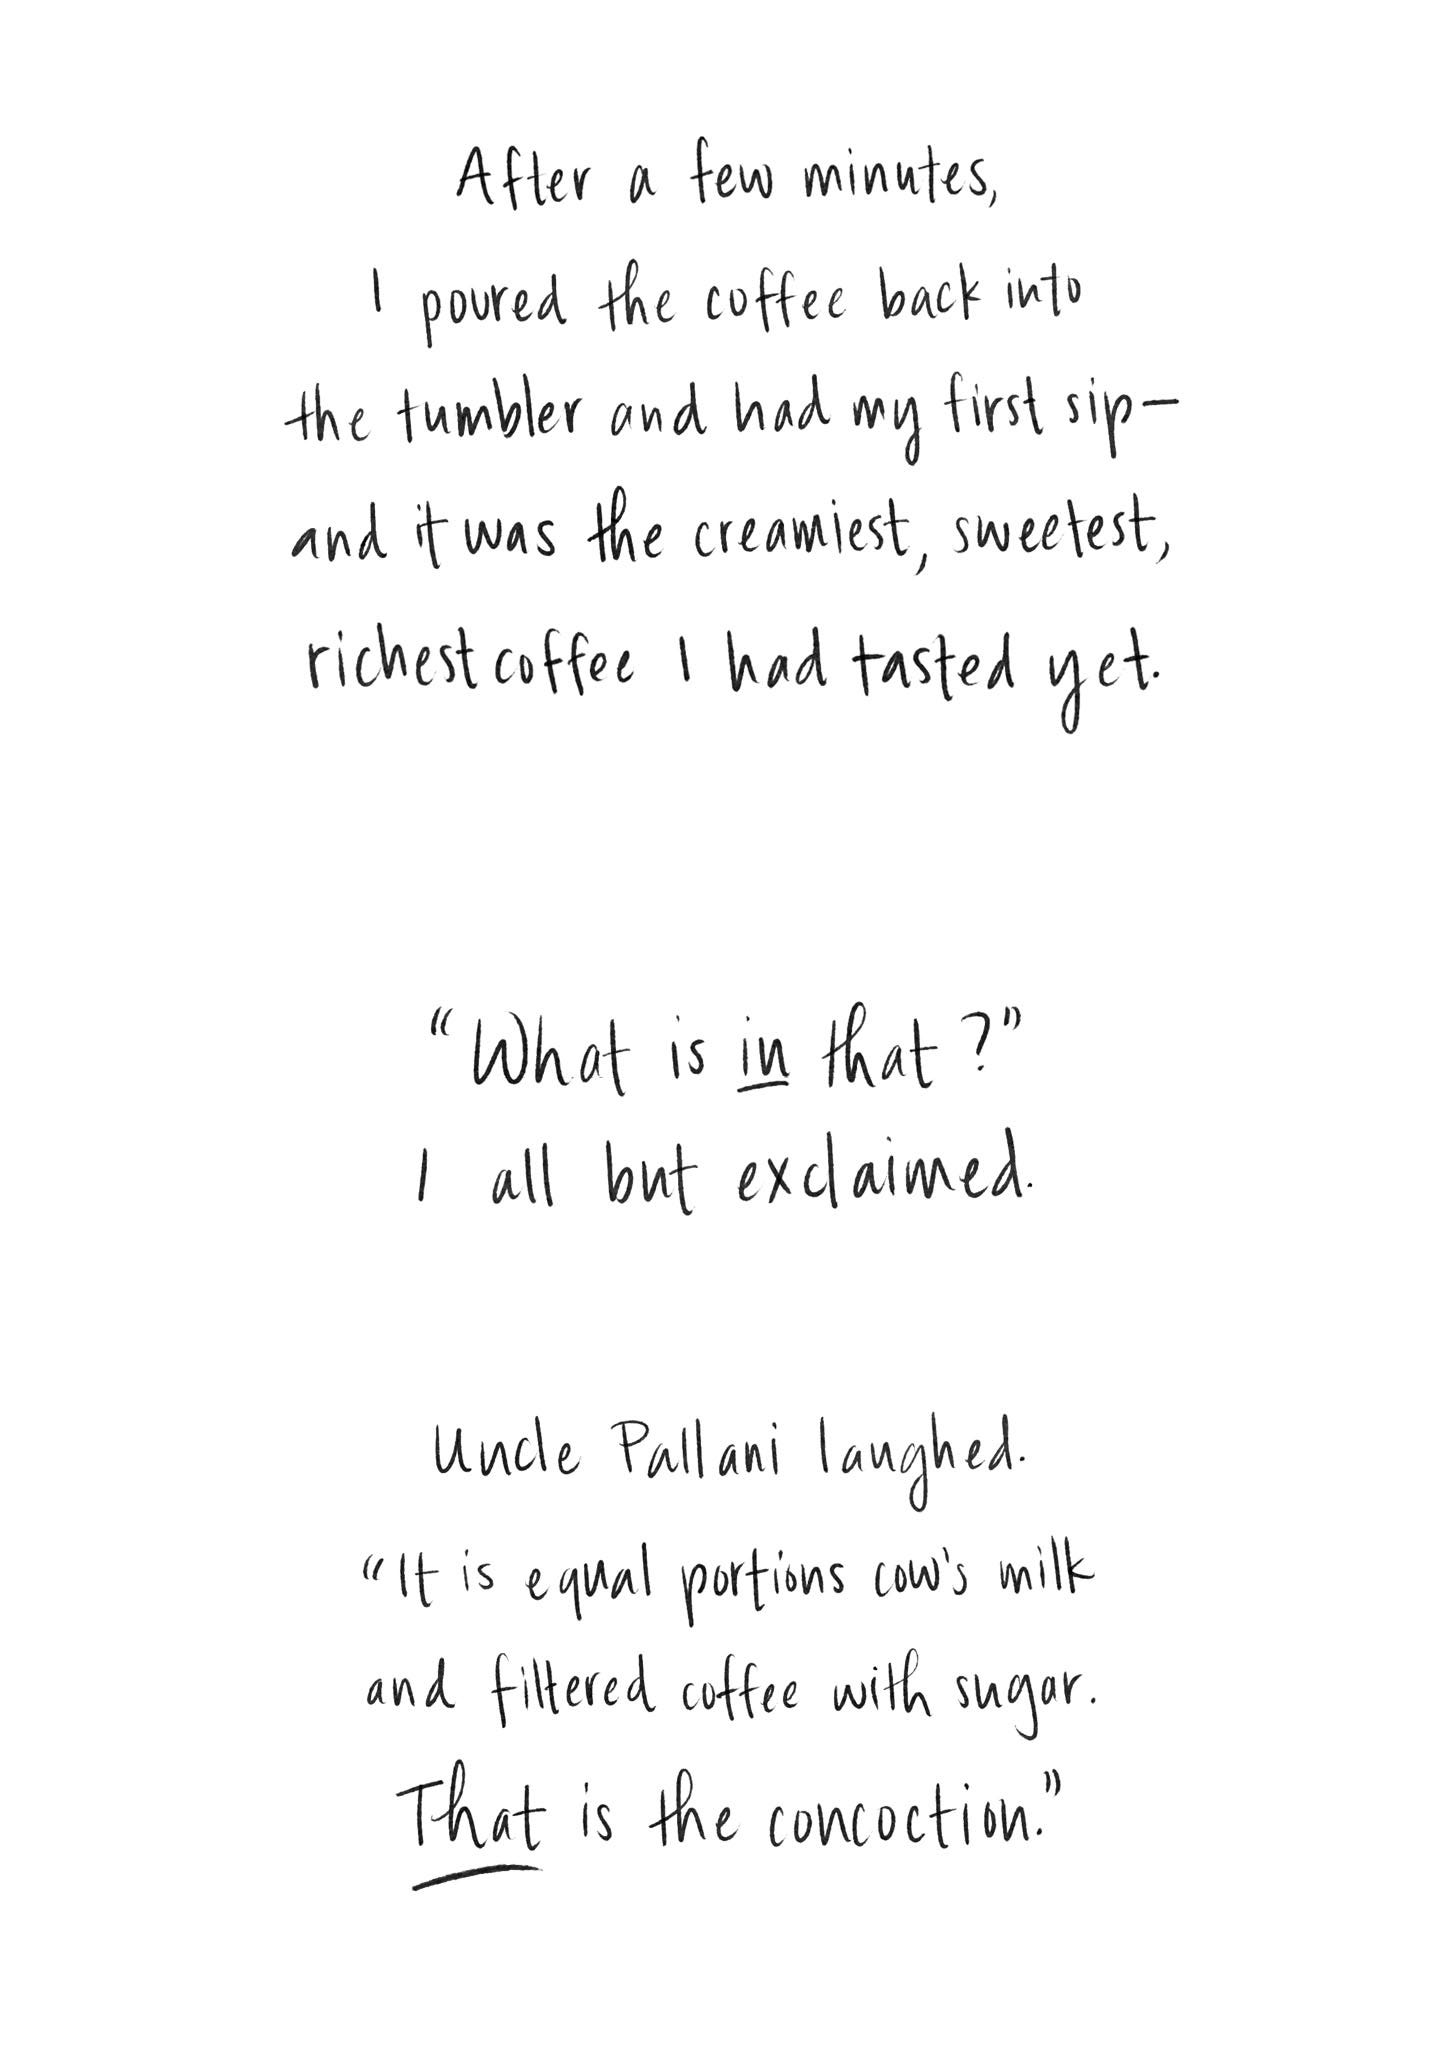 After a few minutes,
I poured the coffee back into
the tumbler and had my first sip—
and it was the creamiest, sweetest,
richest coffee I had tasted yet.
“What is in that?”
I all but exclaimed.
Uncle Pallani laughed.
“It is equal portions cow's milk
and filtered coffee with sugar.
That is the concoction.”